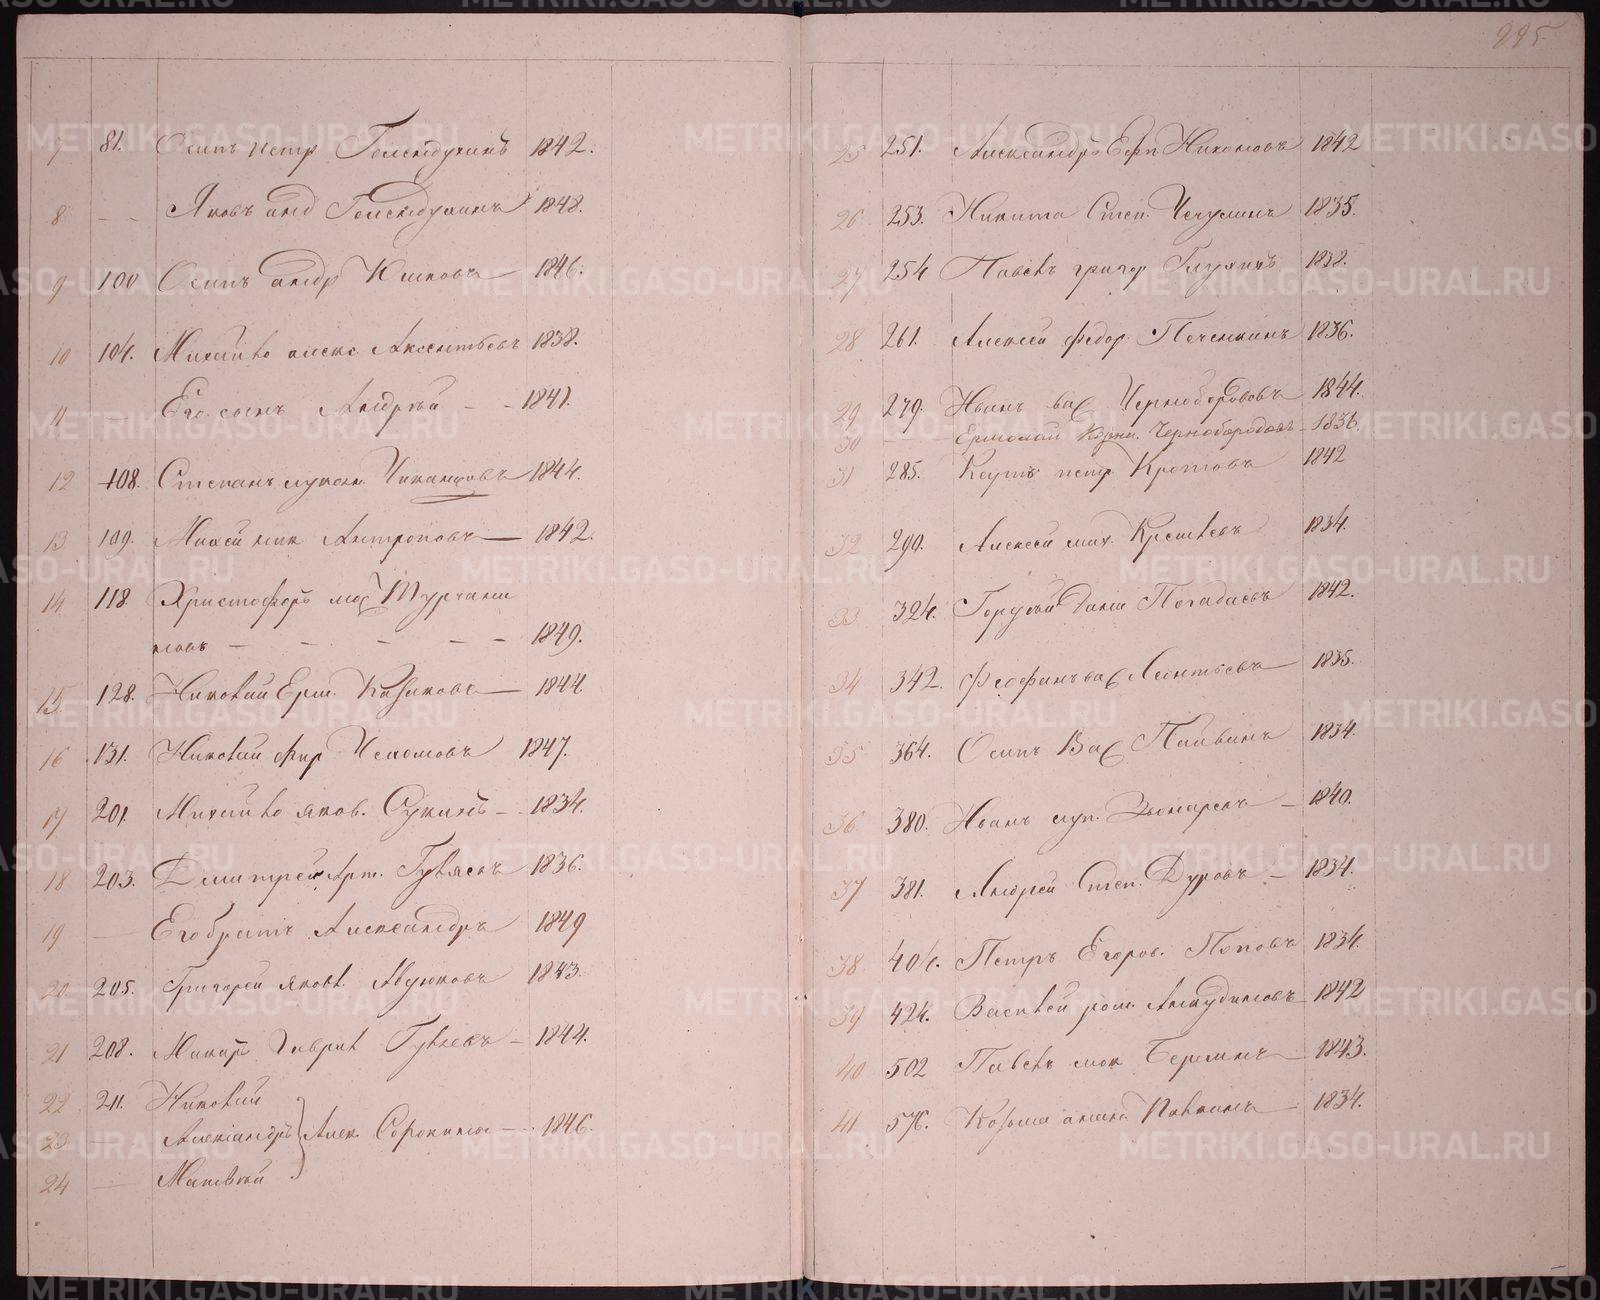 225
7 81. Осипъ петр Голендухинъ 1842.
8 — — Яковъ анд Голендухинъ 1848.
9 100 Осипъ андр Климовъ — 1846.
10 104. Михайло алекс Аксентьевъ 1838.
11 Его сынъ Андрей — — 1841.
12 108. Степанъ лукоян. 1844.
13 109. мик Антроповъ — 1842.
14 118. Христофоръ Турчани
новъ — — — — — 1849.
15 128. Николай Ерм. Казаковъ — 1844
16 131. Николай 1847.
17 201. Михайло яков. Сукинъ — 1834.
18 203. Дмитрей Арт. Гуляевъ 1836.
19 — Его братъ Александръ 1849
20 205. Григорей яковл. Авдюковъ 1843.
21 208. Макаръ Гаврил Гуляевъ — 1844.
22 211. Николай
23 — Александръ Алек. Сорокины — 1846.
24 — Матвей
25 251. Александръ Ефи Никоновъ 1842
26 253. Никита Степ. Чечулинъ 1835.
27 254 Павелъ григор Глухихъ 1838.
28 261. Алексей федор Печенкинъ 1836.
29 279. Иванъ вас Чернобрововъ 1844.
30 — Ермолай Козм. Чернобородовъ — 1836.
31 285. петр. Кротовъ 1842
32 290. Алексей мих. 1834.
33 324. дани Погадаевъ 1842.
34 342. вас Леонтьевъ — 1835.
35 364. Осипъ Вас Пайвинъ 1834.
36 380. Иванъ луп. Звонаревъ — 1840.
37 381. Андрей Степ. Дуровъ — 1834.
38 404. Петръ Егоров. Поповъ 1834.
39 424. Василей ром. Анкудиновъ — 1842
40 502 Павелъ мок — 1843.
41 576. Козьма — 1834.
METRIKI.GASO-URAL.RU